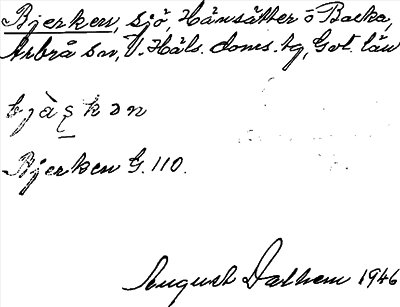 Bjerken, sjö, Hänsätter o Backa,
Arbrå sn, V. Häls. doms. tg, Gvl. län
bjæ̀șkən
Bjerken G. 110.
August Dalhem 1946